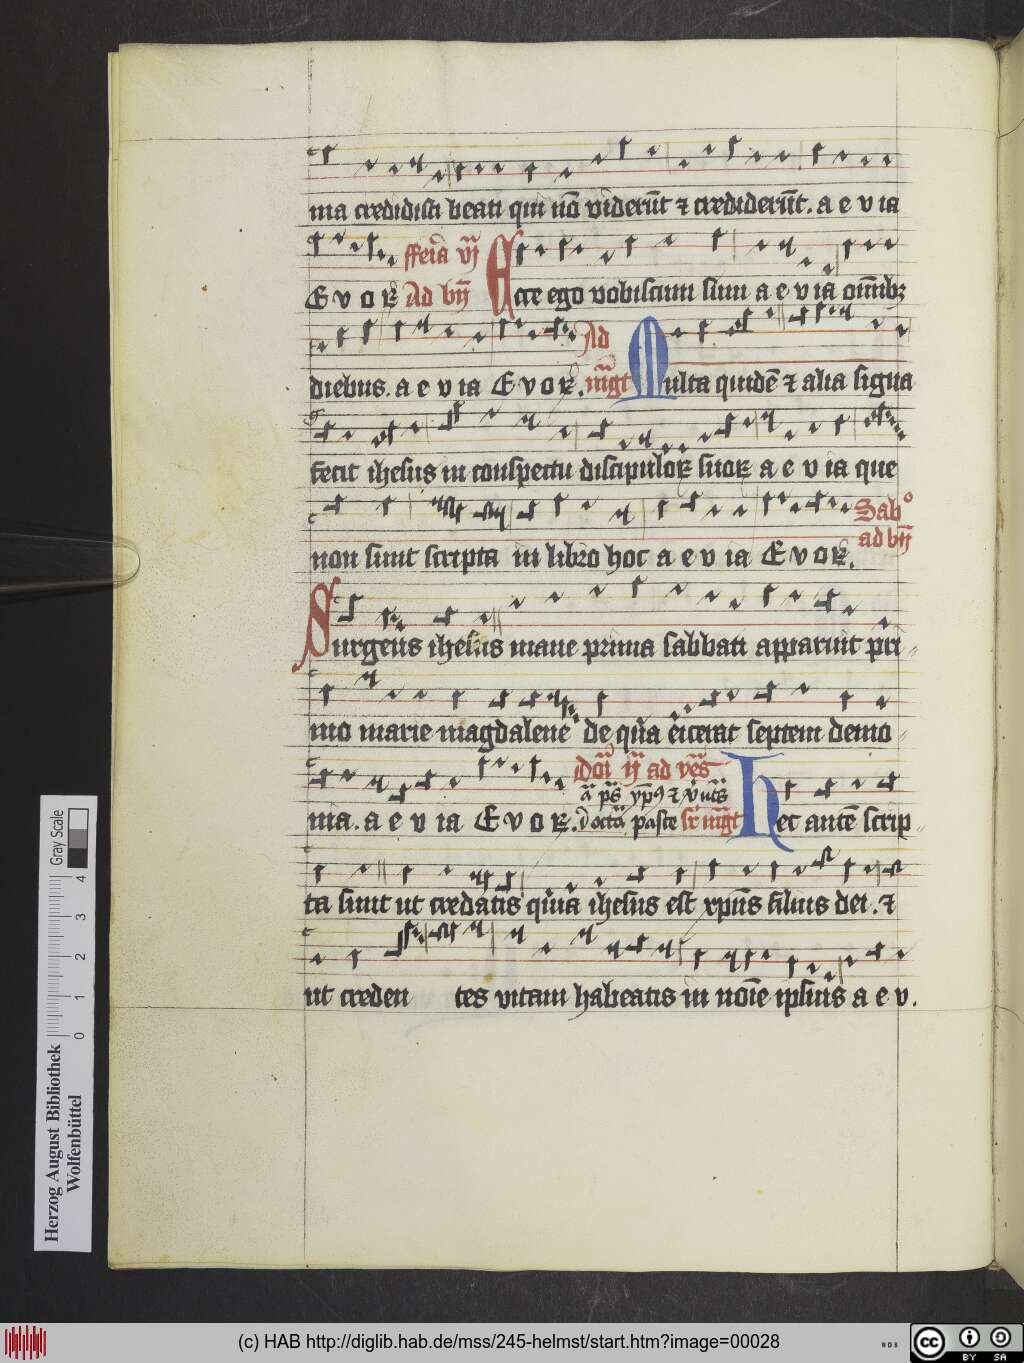 ma credidisti beati qui nō viderūt ⁊ crediderūt. a e v ia
E v o ꝝ ffeīa vj Ad bn̄ Ecce ego vobiscum sum a e v ia oīībꝫ
diebus. a e v ia E v o ꝝ. Ad mgt Multa quidē ⁊ alia signa
fecit ihesus in conspectu discipuloꝝ suoꝝ a e v ia que
non sunt scripta in libro hoc a e v ia E v o ꝝ. Sabᵒ ad bn̄
Surgens ihesus mane prima sabbati apparuit pri
mo marie magdalene de qua eiecerat septem demo
nia. a e v ia E v o ꝝ. Doī ij ad ves̄ a ps̄ yp̄ꝯ ⁊ v̄ut s̄ docta paste sr mgt Hec autē scrip
ta sunt ut credatis quia ihesus est xp̄us filius dei. ⁊
ut creden tes vitam habeatis in noīe ipsius a e v.
Herzog August Bibliothek
Wolfenbüttel
0 1 2 3 4 Gray Scale
(c) HAB http://diglib.hab.de/mss/245-helmst/start.htm?image=00028
WDB
cc BY SA